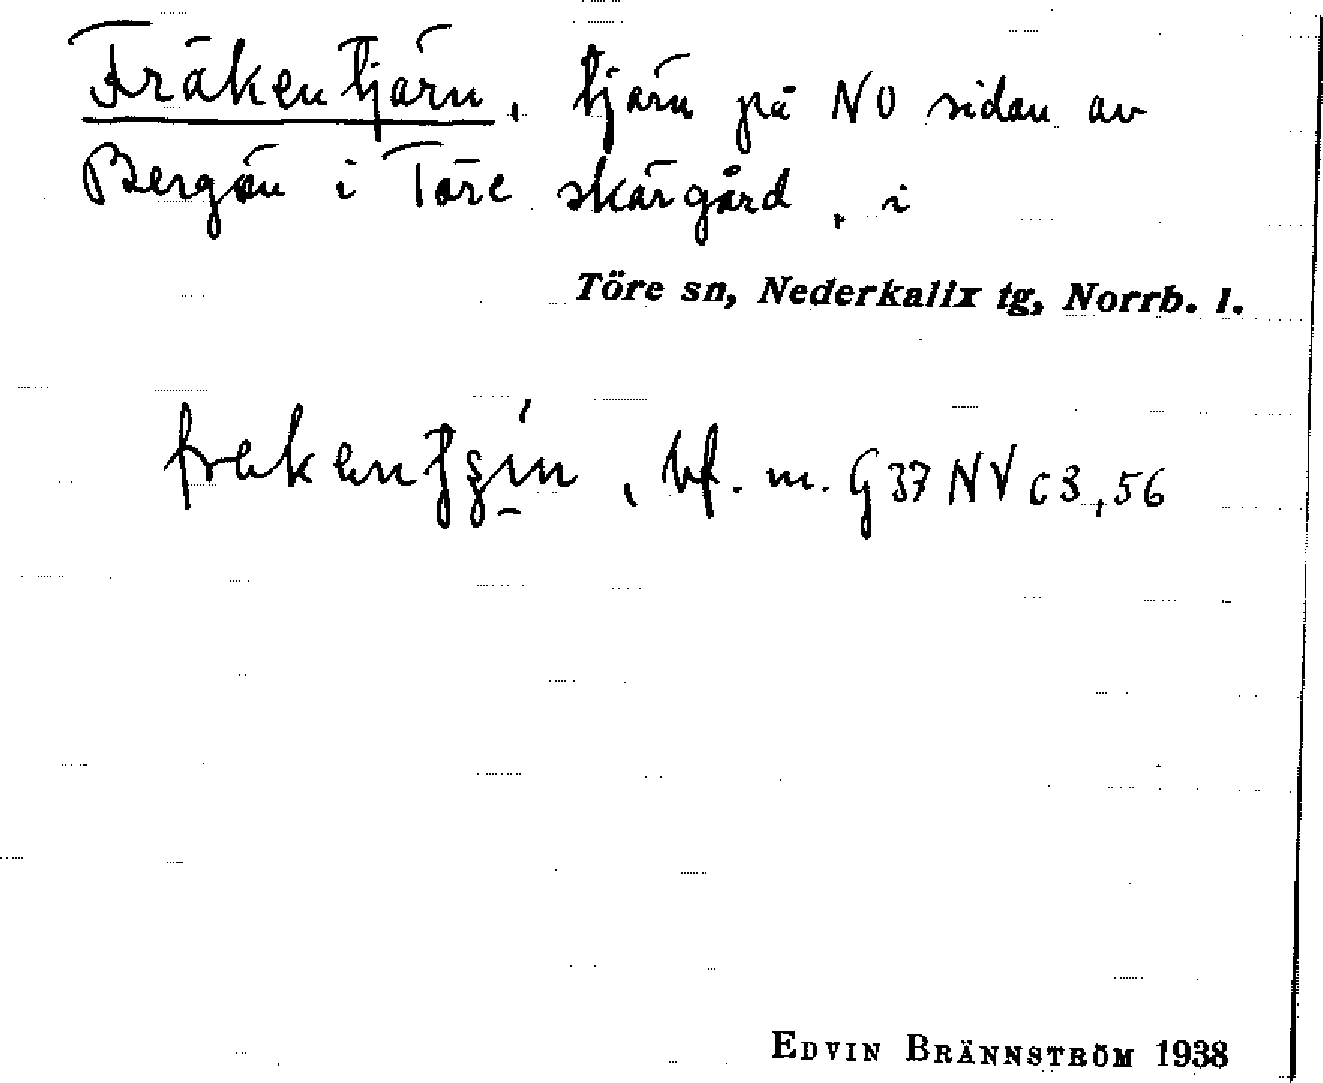 Fräkentjärn, tjärn på NO sidan av
Bergön i Töre skärgård, i
Töre sn, Nederkalix tg, Norrb. l.
bf. m. G 37 NV c3, 56
EDVIN BRÄNNSTRÖM 1938